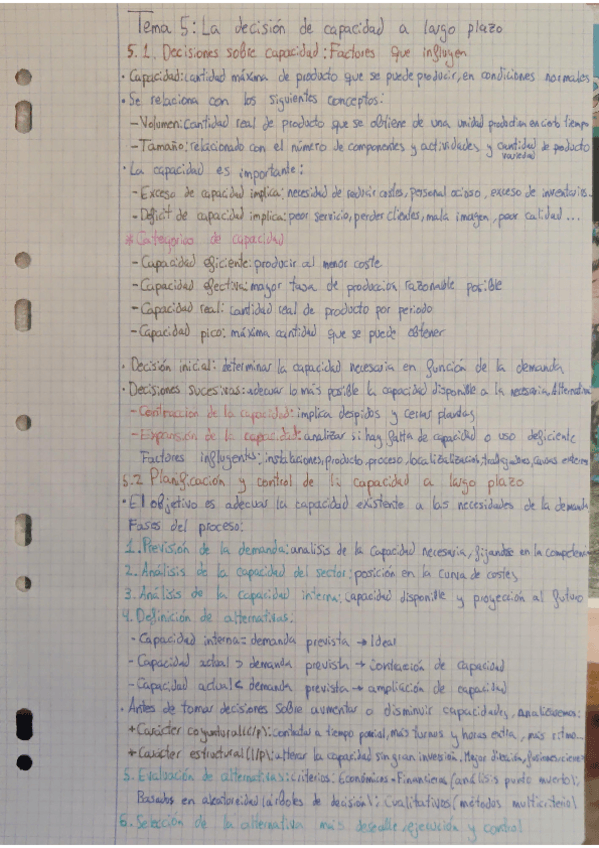 Tema 5: La decisión de capacidad a largo plazo
5.1. Decisiones sobre capacidad: Factores que influyen
· Capacidad: cantidad máxima de producto que se puede producir, en condiciones normales
· Se relaciona con los siguientes conceptos:
- Volumen: cantidad real de producto que se obtiene de una unidad productiva en cierto tiempo
- Tamaño: relacionado con el número de componentes y actividades y cantidad de producto
variedad
· La capacidad es importante:
- Exceso de capacidad implica: necesidad de reducir costes, personal ocioso, exceso de inventarios...
- Déficit de capacidad implica: peor servicio, perder clientes, mala imagen, peor calidad...
* Categorías de capacidad
- Capacidad eficiente: producir al menor coste
- Capacidad efectiva: mayor tasa de producción razonable posible
- Capacidad real: cantidad real de producto por periodo
- Capacidad pico: máxima cantidad que se puede obtener
· Decisión inicial: determinar la capacidad necesaria en función de la demanda
· Decisiones sucesivas: adecuar lo más posible la capacidad disponible a la necesaria. Alternativas
- Contracción de la capacidad: implica despidos y cerrar plantas
- Expansión de la capacidad: analizar si hay falta de capacidad o uso deficiente
Factores influyentes: instalaciones, producto, proceso, localización, trabajadores, causas externas
5.2 Planificación y control de la capacidad a largo plazo
· El objetivo es adecuar la capacidad existente a las necesidades de la demanda
Fases del proceso:
1. Previsión de la demanda: analisis de la capacidad necesaria, fijandose en la competencia
2. Análisis de la capacidad del sector: posición en la curva de costes
3. Análisis de la capacidad interna: capacidad disponible y proyección al futuro
4. Definición de alternativas:
- Capacidad interna = demanda prevista → Ideal
- Capacidad actual > demanda prevista → contracción de capacidad
- Capacidad actual < demanda prevista → ampliación de capacidad
· Antes de tomar decisiones sobre aumentar o disminuir capacidades, analizaremos:
+ Carácter coyuntural (c/p): contratar a tiempo parcial, más turnos y horas extra, más ritmo...
+ Carácter estructural (l/p): alterar la capacidad sin gran inversión. Mejor dirección,
5. Evaluación de alternativas: criterios: Económicos-Financieros (análisis punto muerto);
Basados en aleatoriedad (árboles de decisión); Cualitativos (métodos multicriterio)
6. Selección de la alternativa más deseable, ejecución y control